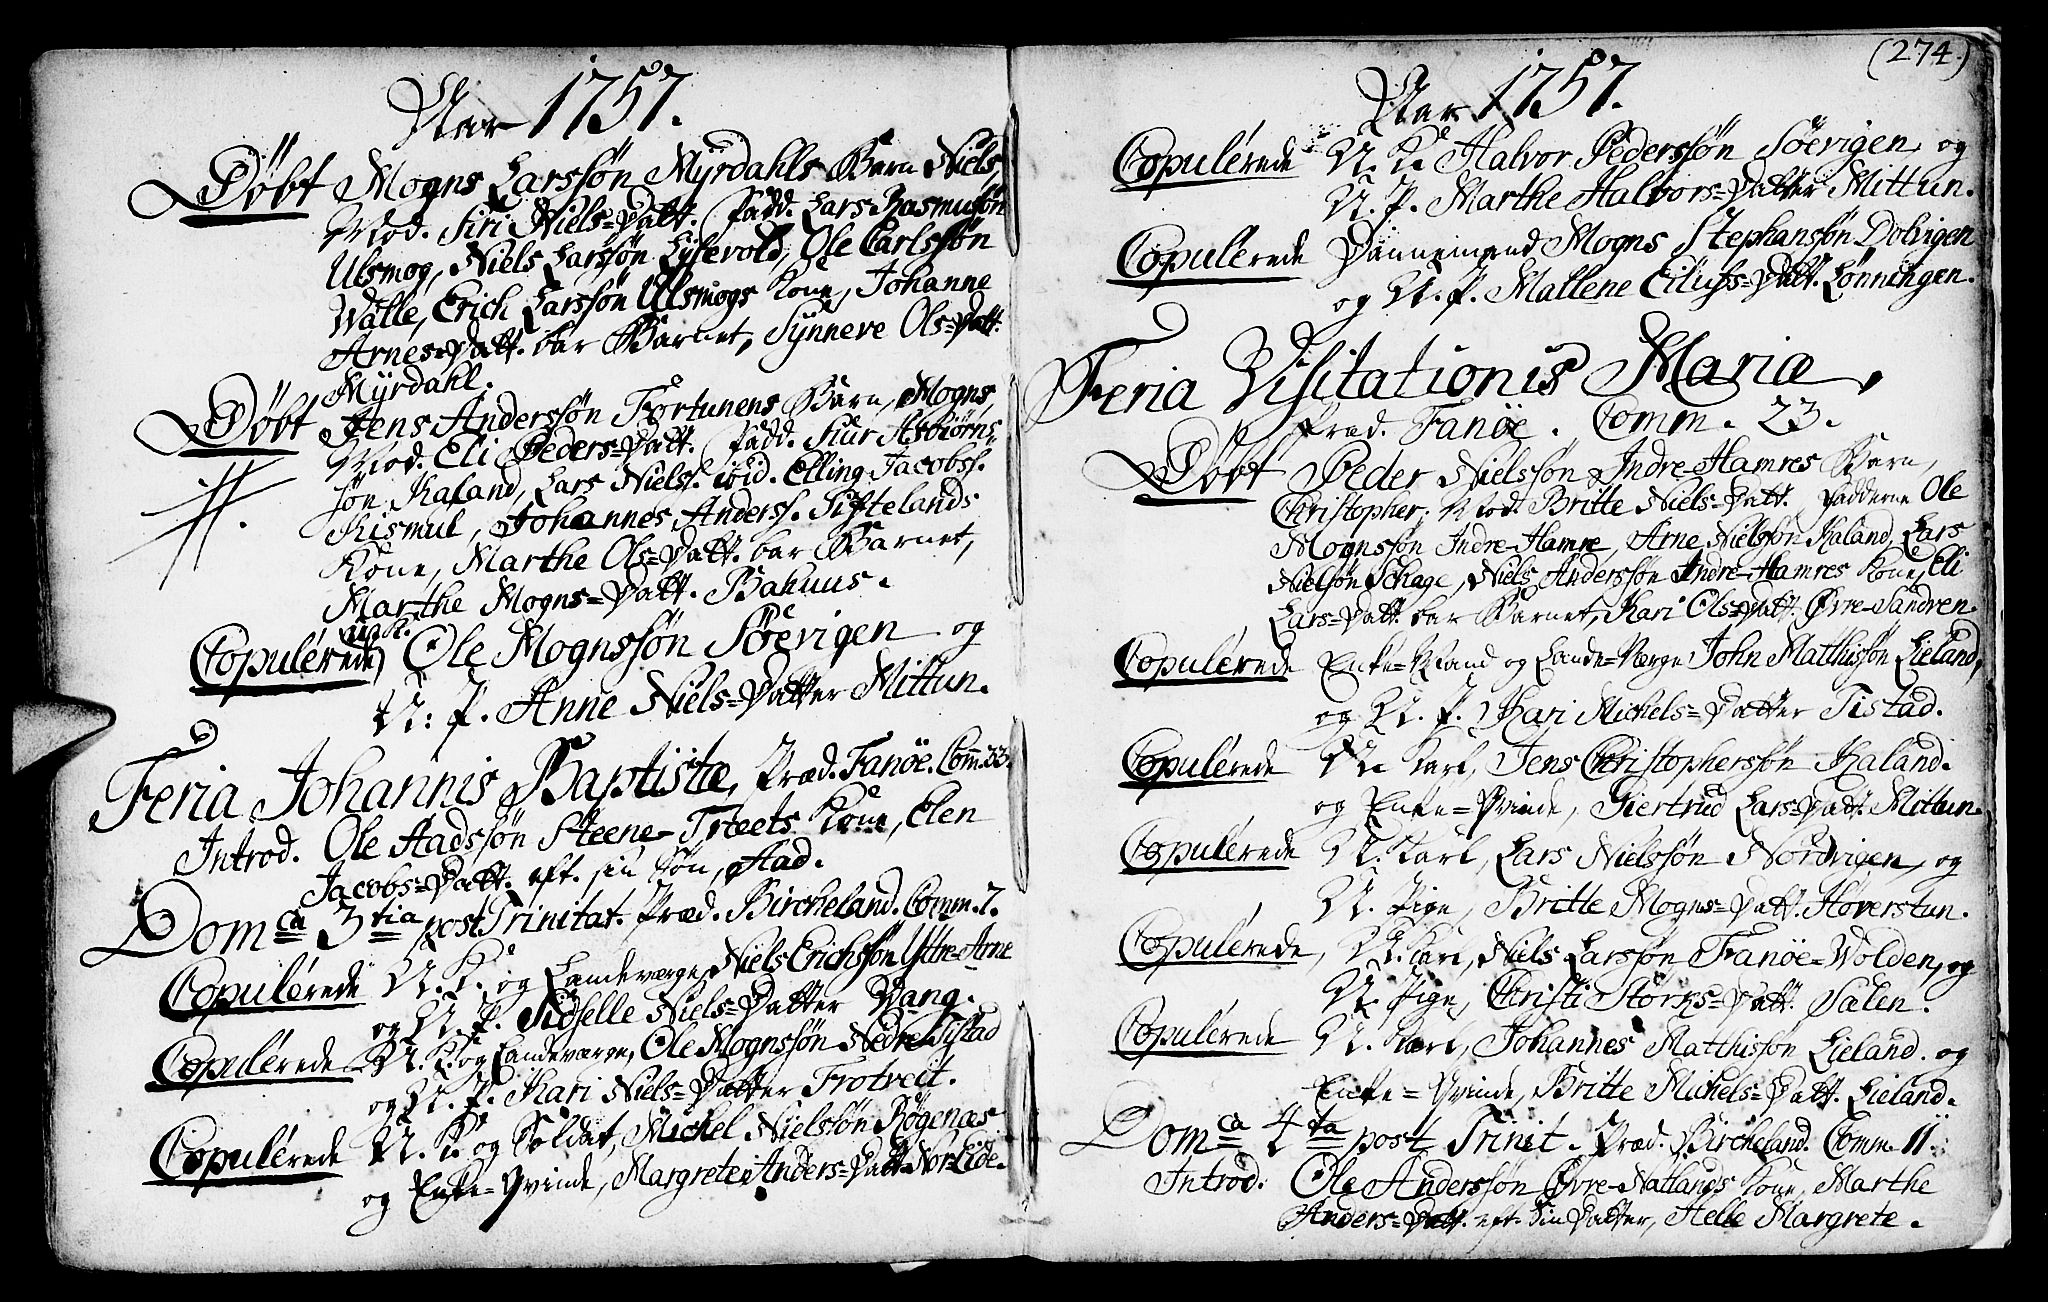 Aar 1757.
Döbt Mogns Larssön Myrdahls Barn Niels,
Mod. Siri Niels=Datt. Fadd. Lars Rasmussön
Ulsmog, Niels Larssön Lysevold, Ole Carlssön
Walle, Erich Larssön Ulsmogs Kone, Johanne
Arnes=Datt. bar Barnet, Synneve Ols=Datt.
Myrdahl.
Döbt Jens Anderssön Fortunens Barn, Mogns,
Mod. Eli Peders=Datt. Fadd. Siur Asbiörns=
sön Kaland, Lars Nielss. ibid. Elling Jacobss.
Kismul, Johannes Anderss. Siftelands
Kone, Marthe Ols=Datt. bar Barnet,
Marthe Mogns=Datt. Bahuus.
Copulérede U. K. Ole Mognssön Söevigen og
U: P. Anne Niels=Datter Mittun.
Feria Johannis Baptistæ, Præd. Fanöe. Comm. 33.
Introd. Ole Aadssön Steene-Træets Kone, Elen
Jacobs=Datt. eft. sin Sön, Aad.
Dom ca 3 tia post Trinitat. Præd. Bircheland. Comm. 7.
Copulérede U. K. og Landeværge, Niels Erichssön Yttre-Arne
og U. P. Sidselle Niels=Datter Vang.
Copulérede U. K. og Landeværge, Ole Mognssön Nedre Tistad
og U. P. Kari Niels=Datter Trotveit.
Copulérede U. K. og Soldat, Michel Nielssön Rögenæs
og Enke=Qvinde, Margrete Anders=Datt. Nor-Eide.
(274.)
Aar 1757.
Copulérede U. K. Halvor Pederssön Söevigen og
U. P. Marthe Halvors=Datter Mittun.
Copulérede Dannemand Mogns Stephanssön Dolvigen
og U. P. Mallene Eilufs=Datt. Lönningen.
Feria Visitationis Mariæ,
Præd. Fanöe. Comm. 23.
Döbt Peder Nielssön Indre-Hamres Barn,
Christopher. Mod. Britte Niels=Datt. Fadderne Ole
Mognssön Indre-Hamre, Arne Nielssön Kaland, Lars
Nielssön Schage, Niels Anderssön Indre-Hamres Kone, Eli
Lars=Datt. bar Barnet, Kari Ols=Datt. Øvre-Sandven.
Copulérede Enke=Mand og Lande=Værge John Matthissön Lieland,
og U. P. Kari Michels=Datter Tistad.
Copulérede U. Karl, Jens Christopherssön Kaland.
og Enke=Qvinde, Giertrud Lars=Datt. Mittun.
Copulérede U. Karl, Lars Nielssön Nordvigen, og
U. Pige, Britte Mogns=Datt. Höverstun.
Copulérede, U. Karl, Niels Larssön Fanöe=Wolden, og
U. Pige, Christi Storks=Datt. Salen.
Copulérede U. Karl, Johannes Matthissön Lieland. og
Enke=Qvinde, Britte Michels=Datt. Lieland.
Dom ca 4 ta post Trinit. Præd. Bircheland. Comm. 11.
Introd. Ole Anderssön Øvre-Natlands Kone, Marthe
Anders=Datt. eft. sin Datter, Helle Margrete.